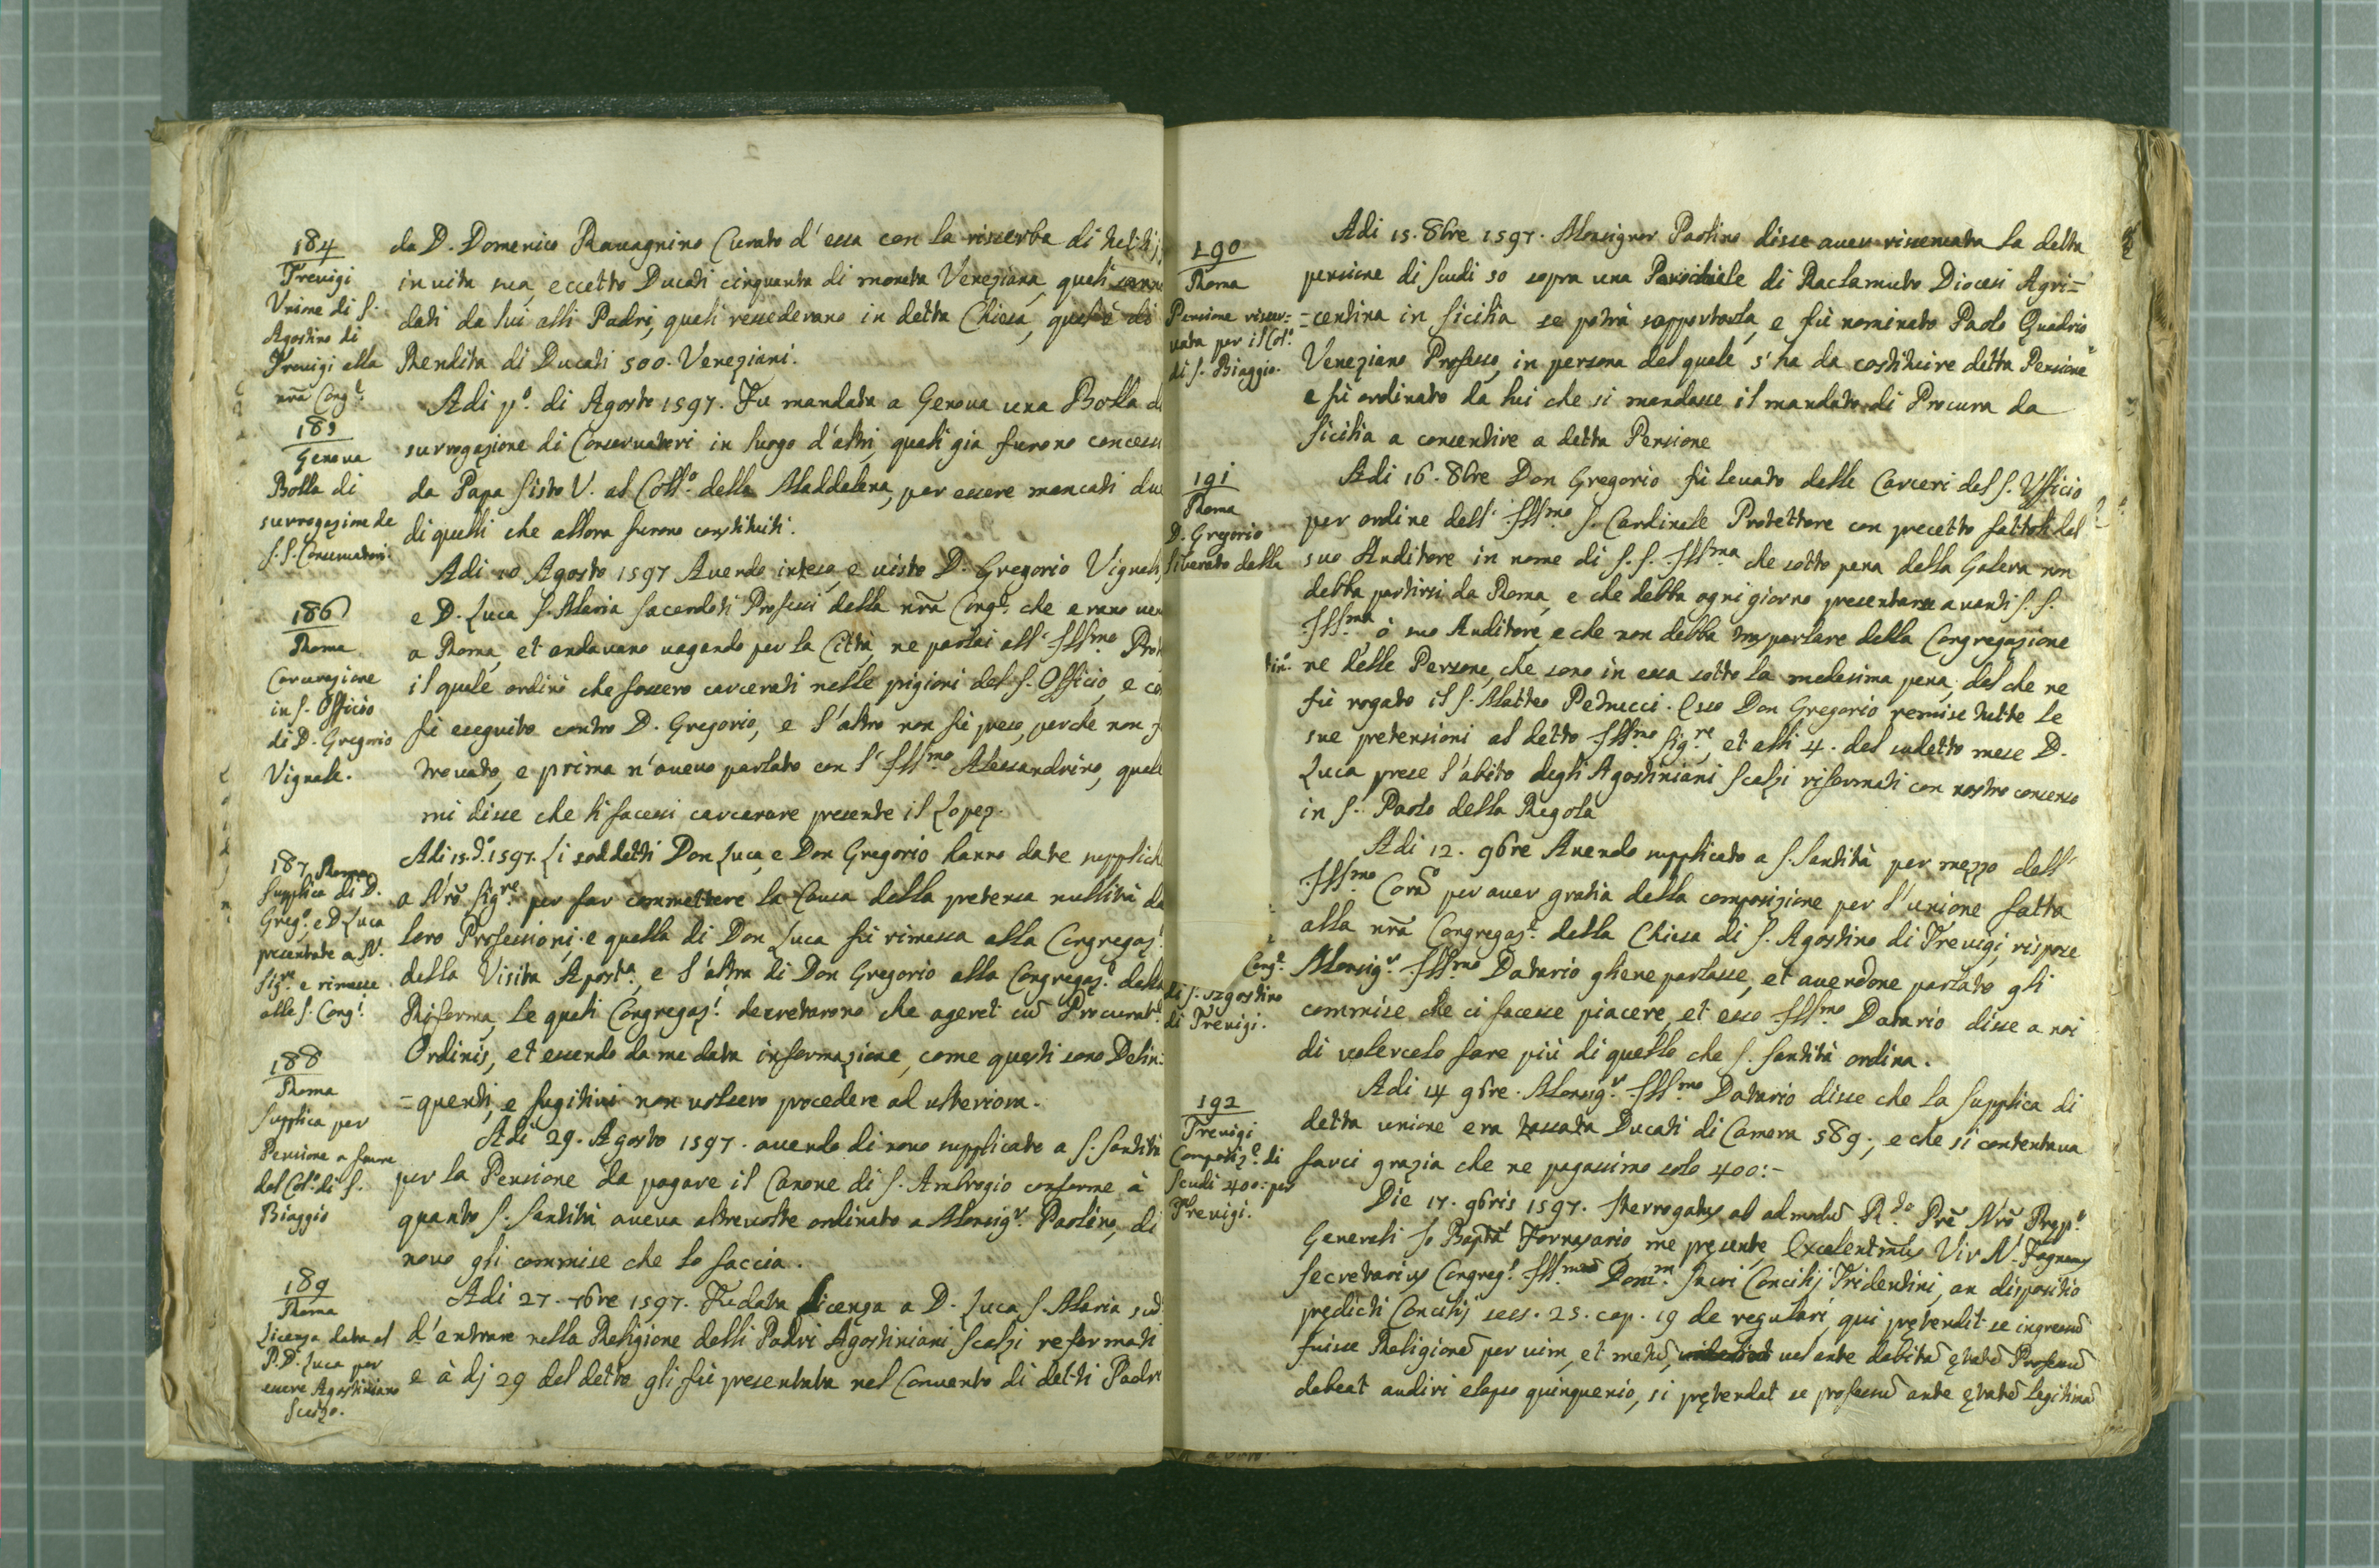 184
Trevigi
Unione di S.
Agostino di
Trevigi alla
nrã Cong.e
da D. Domenico Ravagnino Curato d'essa con la risserba di
in vita sua, eccetto Ducati cinquanta di moneta Veneziana, quali
dati da lui alli Padri, quali ressederano in detta Chiesa, quale è di
Rendita di Ducati 500. Veneziani.
185
Genova
Bolla di
surrogazione de
S.S. Conservatori.
Adi p.o di Agosto 1597. Fu mandata a Genova una Bolla d
surrogazione di Conservatori in luogo d'altri, quali gia furono concessi
da Papa Sisto V. al Coll.o della Maddalena, per essere mancati due
di quelli che allora furono constituiti.
186
Roma
Carcerazione
in S. Officio
di D. Gregorio
Vignale.
Adi 10 Agosto 1597 Avendo inteso, e visto D. Gregorio Vignale,
e D. Luca S. Maria Sacerdoti Professi della nrã Cong.e che erano
a Roma, et andavano vagando per la Città, ne parlai all' Ill.mo Prot
il quale ordinò che fossero carcerati nelle prigioni del S. Officio, e co
fù eseguito contro D. Gregorio, e l'altro non fù preso, perche non f
trovato, e prima n'avevo parlato con l' Ill.mo Alessandrino, quale
mi disse che li facessi carcerare presente il Lopez.
187 Roma
Supplica di D.
Greg.o, e D. Luca
presentate a N.
Sig.re e rimesse
alle S. Cong.i
Adi 15. d.o 1597. Li soddetti Don Luca, e Don Gregorio hanno date suppliche
a Nrõ Sig.re per far commettere la Causa della pretensa nullità de
loro Professioni. e quella di Don Luca fù rimessa alla Congregaz.e
della Visita Apost.a, e l'altra di Don Gregorio alla Congregaz.e della
Riforma, le quali Congregaz.i decretarono che ageret cũ Procurat.e
Ordinis, et essendo da me data informazione, come questi sono Delin:
=quenti, e fugitivi non volsero procedere ad ulteriora.
188
Roma
Supplica per
Pensione a favore
del Col.o di S.
Biaggio
Adi 29. Agosto 1597. avendo di novo supplicato a S. Santità
per la Pensione da pagare il Canone di S. Ambrogio conforme à
quanto S. Santità aveva altrevolte ordinato a Monsig.r Paolino, di
novo gli commise che lo faccia.
189
Roma
Licenza data al
P. D. Luca per
essere Agostiniano
Scalzo.
Adi 27. 7bre 1597. Fu data licenza a D. Luca S. Maria sud.
d'entrare nella Religione delli Padri Agostiniani Scalzi reformati
e à dj 29 del detto gli fù presentata nel Convento di detti Padri
190
Roma
Pensione riser:
vata per il Col.o
di S. Biaggio.
Adi 15. 8bre 1597. Monsignor Paolino disse aver riservata la detta
pensione di scudi 50 sopra una Parochiale di Raclamuto Diocesi Agri=
=centina in Sicilia se potrà sopportarla, e fù nominato Paolo Quadrio
Veneziano Professo, in persona del quale s'ha da costituire detta Pensione
e fù ordinato da lui che si mandasse il mandato di Procura da
Sicilia a consentire a detta Pensione
191
Roma
D. Gregorio
liberato dalla
Adi 16. 8bre Don Gregorio fù levato dalle Carceri del S. Ufficio
per ordine dell' Ill.mo S. Cardinale Protettore con precetto fattoli dal
suo Auditore in nome di S. S. Ill.ma che sotto pena della Galera non
debba partirsi da Roma, e che debba ogni giorno presentarse avanti S. S.
Ill.ma ò suo Auditore, e che non debba parlare della Congregazione
ne delle Persone, che sono in essa sotto la medesima pena, del che ne
fù rogato il S. Matteo Petrucci. Esso Don Gregorio remise tutte le
sue pretensioni al detto Ill.mo Sig.re, et alli 4. del sudetto mese D.
Luca prese l'abito degli Agostiniani Scalzi riformati con nostro consenso
in S. Paolo della Regola
Cong.e
di S. Agostino
di Trevigi.
Adi 12. 9bre Avendo supplicato a S. Santità per mezzo dell'
Ill.mo per aver gratia della composizione per l'unione fatta
alla nrã Congregaz.e della Chiesa di S. Agostino di Trevigi, rispose
Monsig.r Ill.mo Datario gliene parlasse, et avendone parlato gli
commise che ci facesse piacere, et esso Ill.mo Datario disse a noi
di volercelo fare più di quello che S. Santità ordina.
192
Trevigi
Composiz.e di
Scudi 400: per
Trevigi.
Adi 14 9bre. Monsig.r Ill.mo Datario disse che la Supplica di
detta unione era tassata Ducati di Camera 589; e che si contentava
farci grazia che ne pagassimo solo 400:-
Die 17. 9bris 1597. Iterrogatus ab admodũ R.do Prẽ Nrõ Prep.o
Generali Jo Bapta Fornasario, me pręsente, Vir N. Fagnanus
Secretarius Congreg.s Ill.morũ Dom.m Sacri Concilij Tridentini, an dispositio
prędicti Concilij sess. 25. cap. 19 de regulari, qui prętendit se ingressũ
fuisse Religionẽ per vim, et metũ, vel ante debitã ętatẽ Professũ
debeat audiri elapso quinquenio, si prętendat se professũ ante ętatẽ legitimã